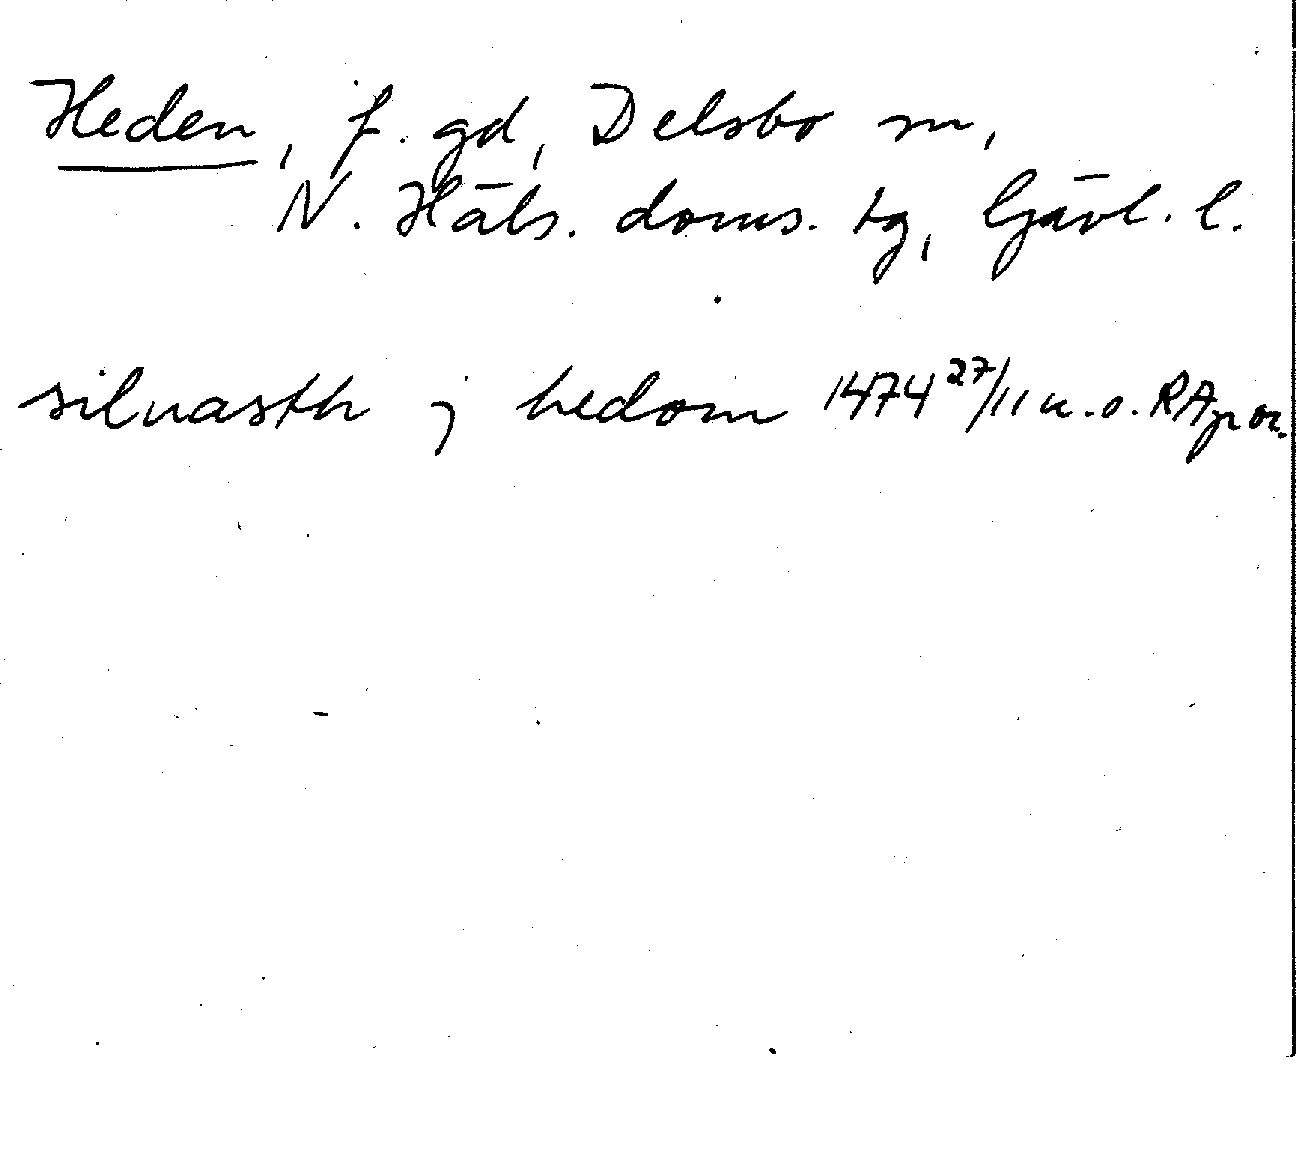 Heden, f. gd, Delsbo sn,
N. Häls. doms. tg, Gävl. l.
siluasth j hedom 1474 27/11 u.o. RAp or.